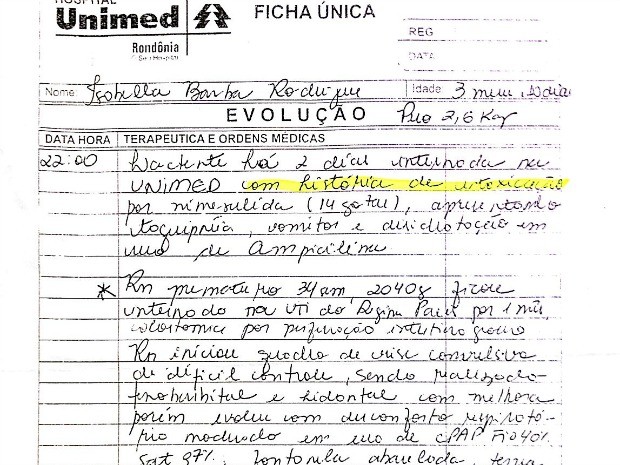 HOSPITAL
Unimed
Rondônia
FICHA ÚNICA
REG
DATA
Nome: Isabella Barba Rodrigues
Idade: 3 meses,
EVOLUÇÃO Peso 2,6 Kg
DATA HORA TERAPEUTICA E ORDENS MÉDICAS
22:00 Lactente há 2 dias internada na
UNIMED com história de intoxicação
por nimesulida (14 gotas), apresentando
taquipnéia, vomitos e desidratação em
uso de Ampicilina
* Rn prematuro 34 sem, 2040g ficou
internado na UTI do Regina Pacis por 1 mês,
colostomia por perfuração intestino grosso
Rn iniciou quadro de crise convulsiva
de difícil controle, sendo realizado
fenobarbital e hidantal com melhora
porém evolui com desconforto respirató-
rio moderado em uso de CPAP FiO 40%
Sat 97% fontanela abaulada,